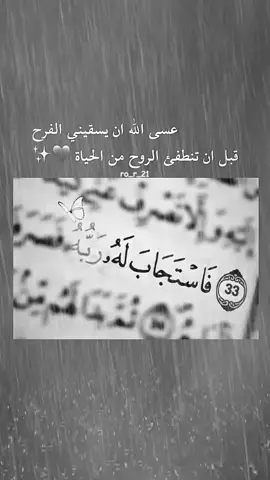 عسى الله ان يسقيني الفرح
قبل ان تنطفئ الروح من الحياة 🤍✨
ro_r_21
وَإِلَّا تَصْرِفْ عَنِّي
33 فَاسْتَجَابَ لَهُ رَبُّهُ فَصَرَفَ
ثُمَّ بَدَا لَهُم مِّنْ